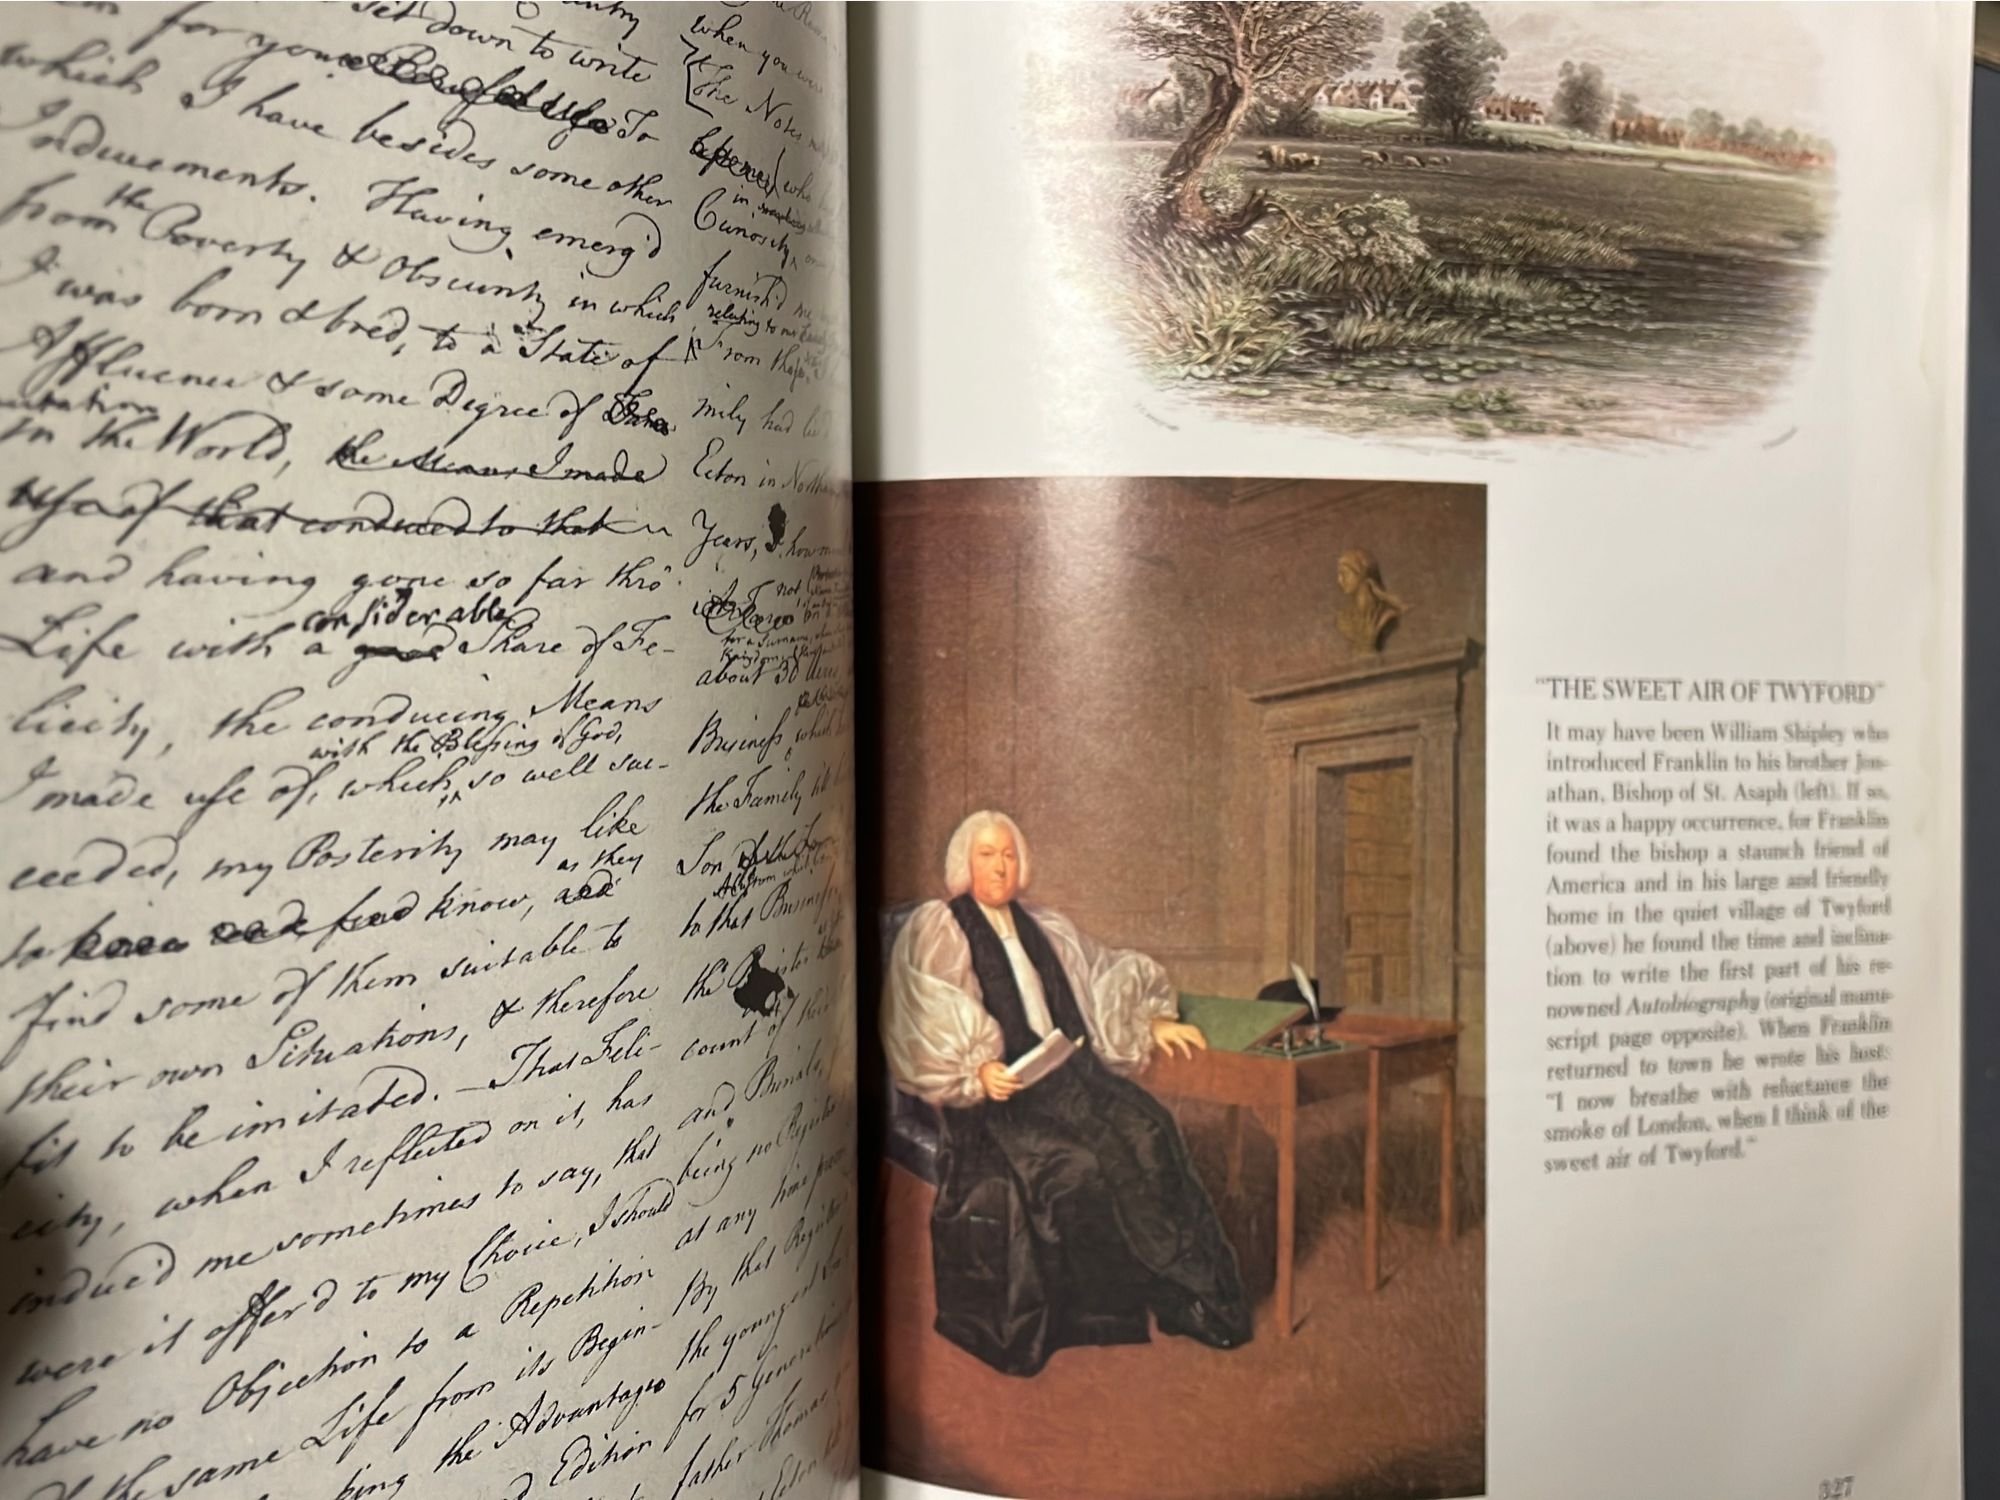 set down to write
for you. To
which I have besides some other
Inducements. Having emerg'd
from the Poverty & Obscurity in which
I was born & bred, to a State of
Affluence & some Degree of
utation
in the World, the Means I made
Use of that conduced to that
and having gone so far thro'
considerable
Life with a good Share of Fe-
licity, the conducing Means
with the Blessing of God,
I made use of, which, so well suc-
ceeded, my Posterity may like
as they
to know, and
find some of them suitable to
their own Situations, & therefore
fit to be imitated. — That Feli-
city, when I reflected on it, has
induc'd me sometimes to say, that
were it offer'd to my Choice, I should
have no Objection to a Repetition
of the same Life from its Begin-
king the Advantages
Edition
when you were
The Notes
Curiosity
furnish'd me
relating to
From these
mily had
Ecton in North
Years,
not
for a Surname,
about 30 Acres
Business which
the Family
Son
to that Business
the
count of their
and Burials,
being no Register
at any time
By that Register
the youngest
for 5 Generations
father Thomas
Ecton
"THE SWEET AIR OF TWYFORD"
It may have been William Shipley who
introduced Franklin to his brother Jon-
athan, Bishop of St. Asaph (left). If so,
it was a happy occurrence, for Franklin
found the bishop a staunch friend of
America and in his large and friendly
home in the quiet village of Twyford
(above) he found the time and inclina-
tion to write the first part of his re-
nowned Autobiography (original manu-
script page opposite). When Franklin
returned to town he wrote his host:
"I now breathe with reluctance the
smoke of London, when I think of the
sweet air of Twyford."
327